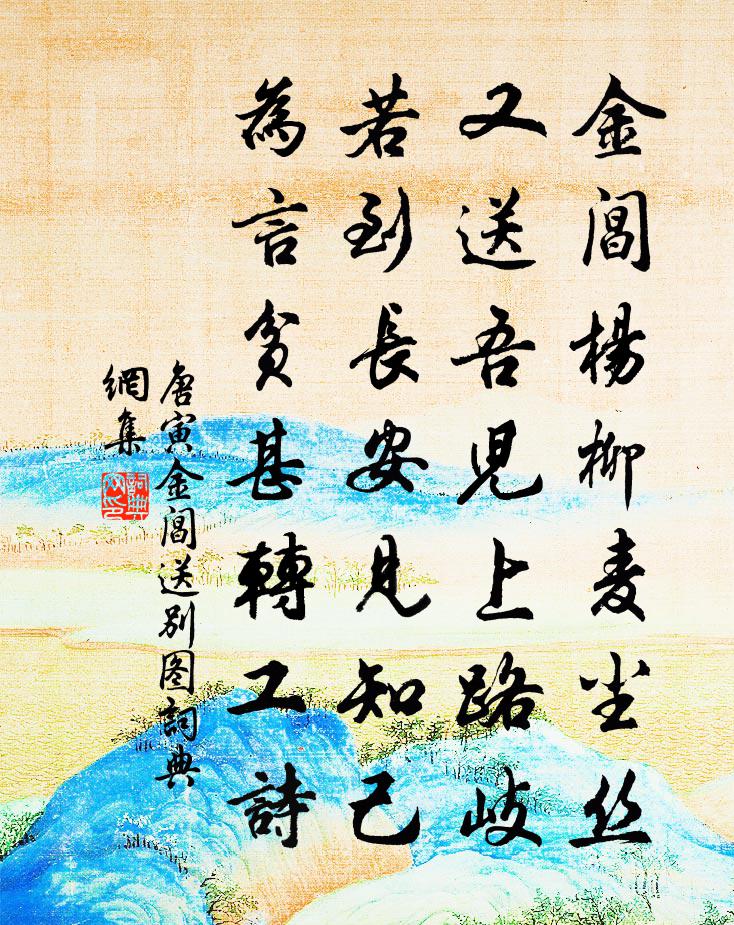 金閶楊柳麦尘丝
又送吾児上路岐
若到長安見知己
為言貧甚轉工詩
唐寅金閶送别图詞典
網集
詞典